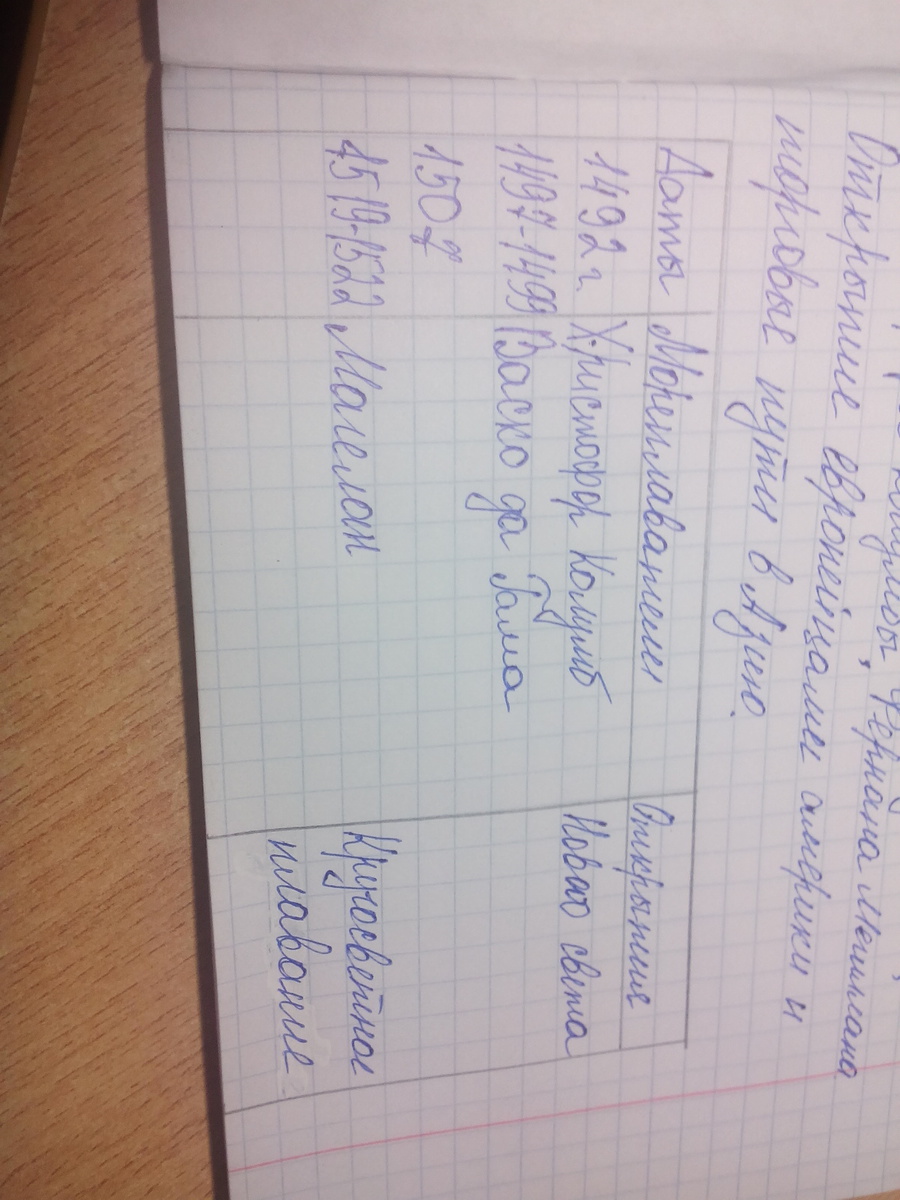 Колумбы, Фернана Магеллана
Открытие европейцами америки и
торговые пути в Азию.
Даты Мореплаватели Открытие
1492 г. Христофор Колумб Нового света
1497-1499 Васко да Гама
1507
1519-1522 Магелан Кругосветное
плавание